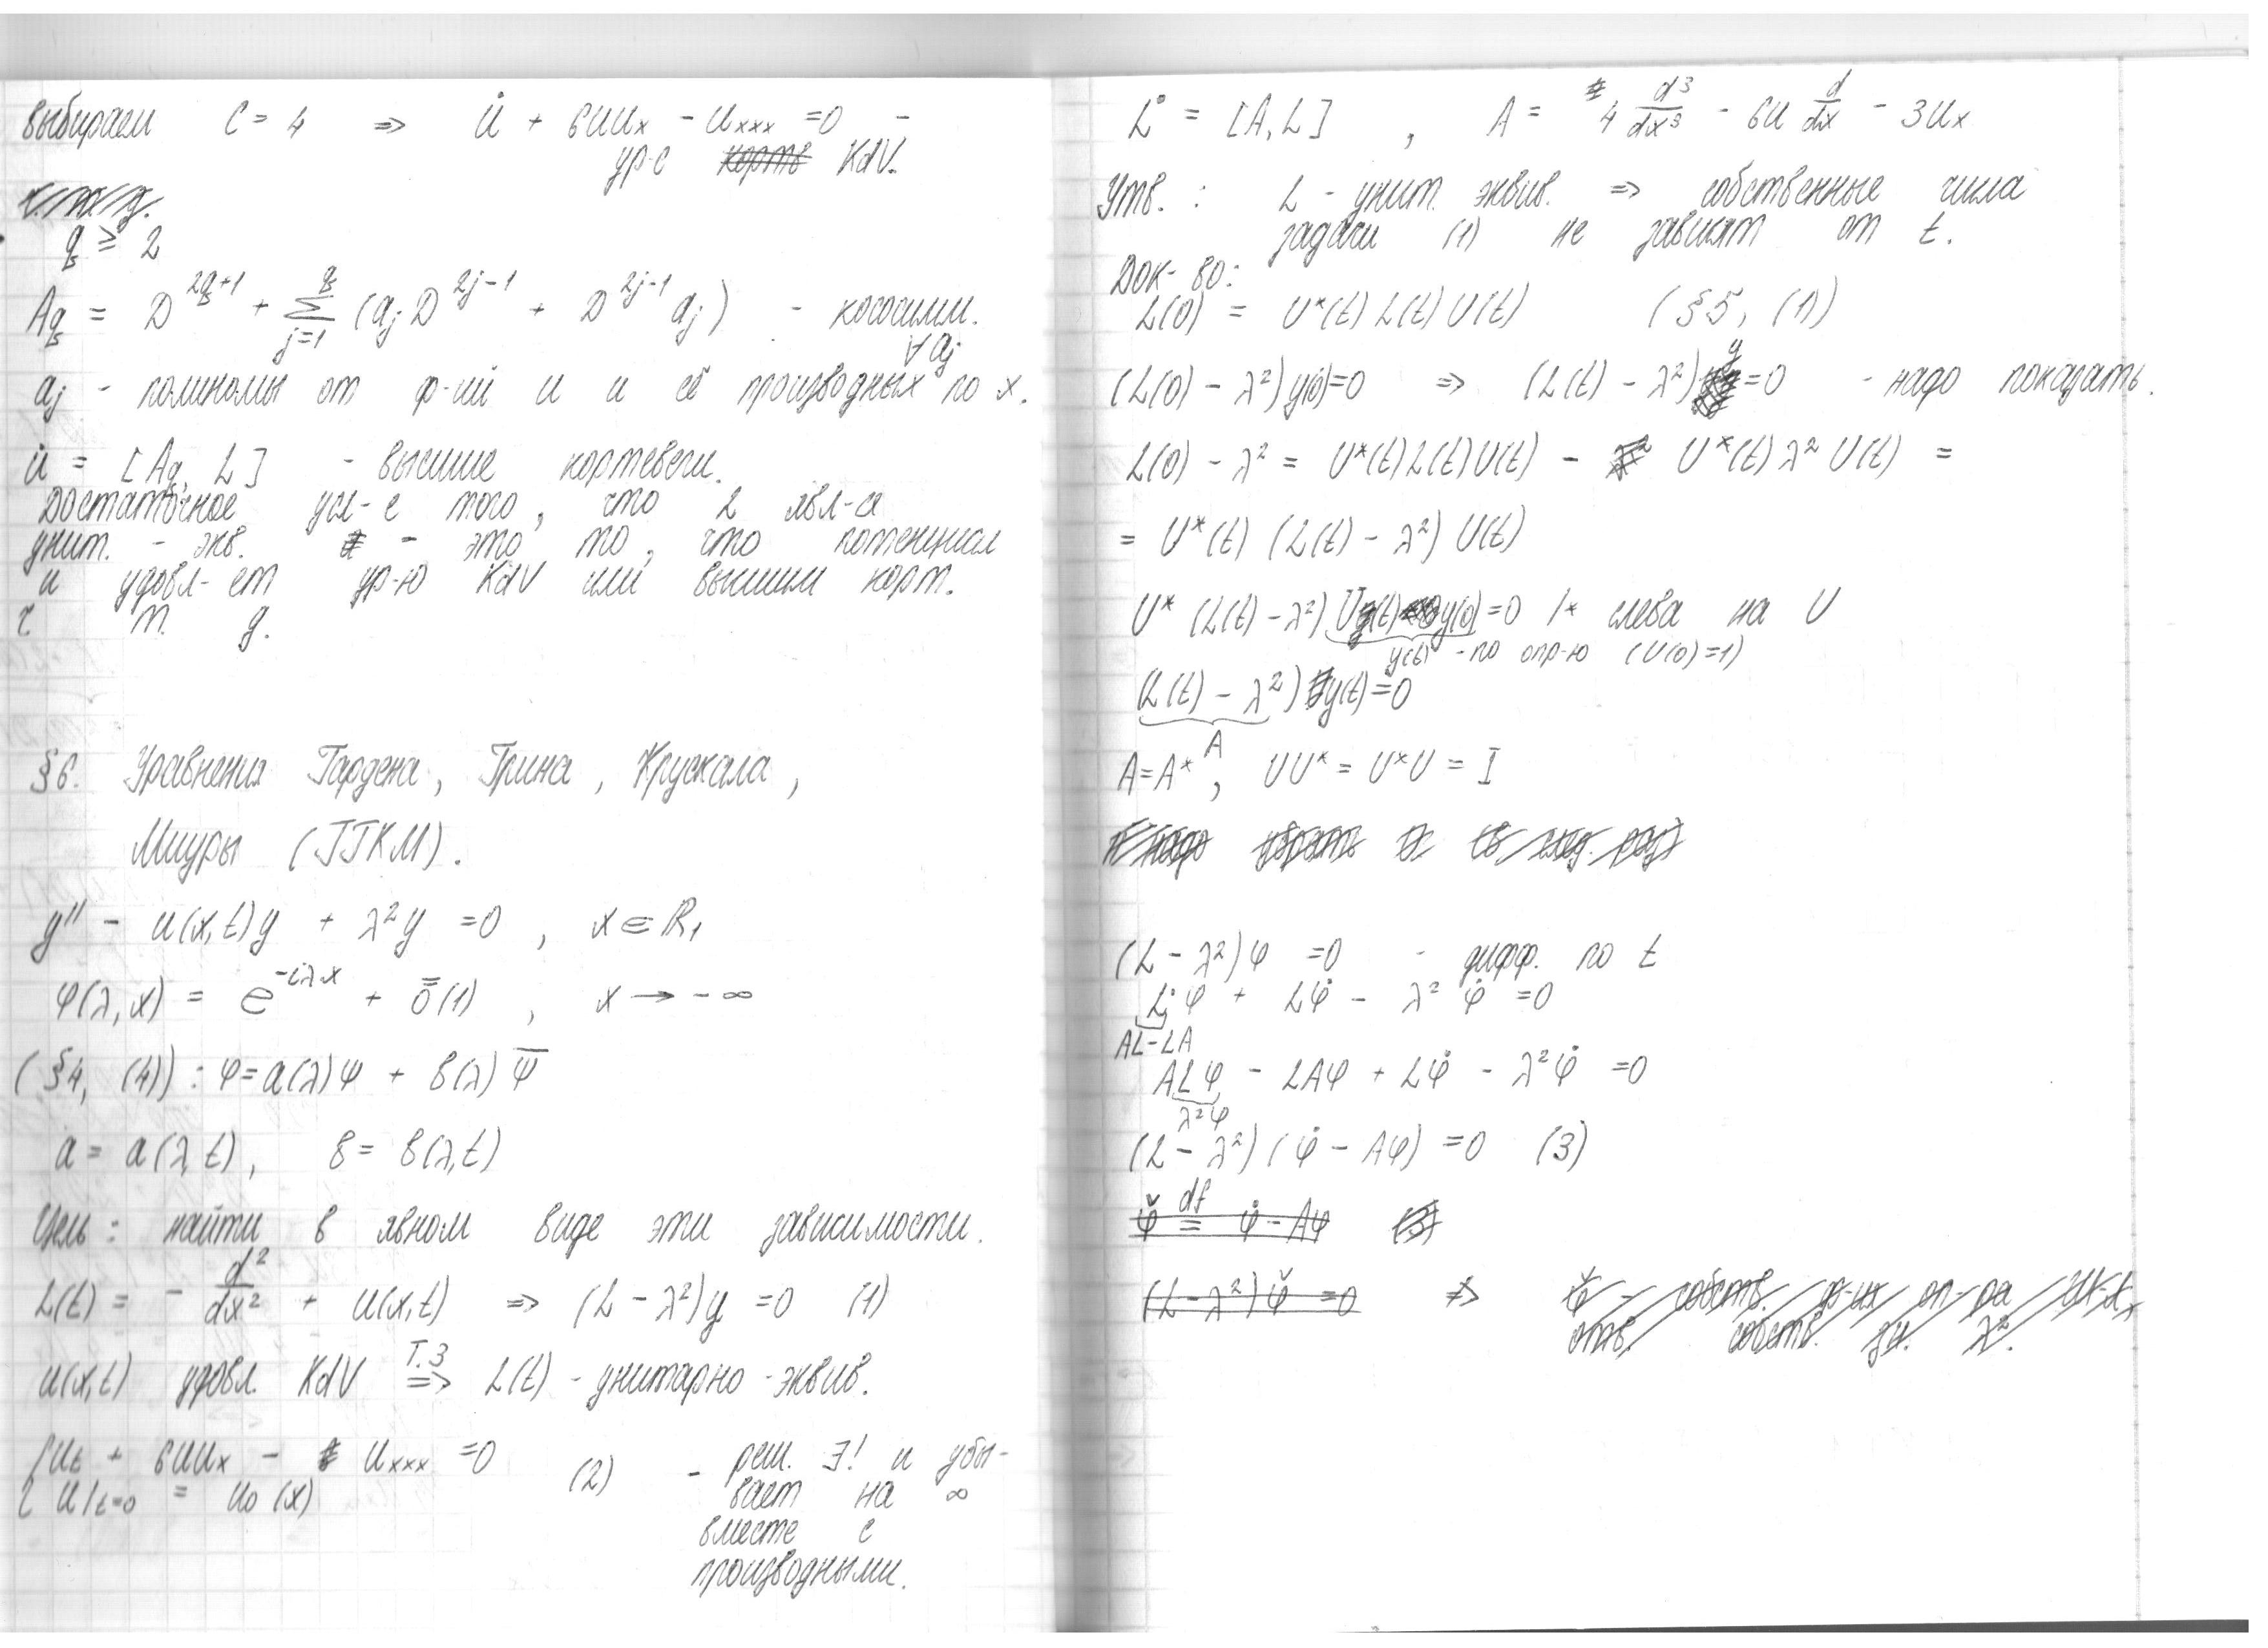 выбираем C = 4 => u̇ + 6uuₓ - uₓₓₓ = 0 -
ур-е KdV.
q ≥ 2
A_q = D^{2q+1} + Σ_{j=1}^{q} (a_j D^{2j-1} + D^{2j-1} a_j) - кососимм.
∀ a_j
a_j - полиномы от ф-ий u и её производных по x.
u̇ = [A_q, L] - высшие кортевеги.
Достаточное усл-е того, что L явл-ся
унит. - экв. - это то, что потенциал
u удовл-ет ур-ю KdV или высшим корт.
ч т. д.
§6. Уравнения Гарднера, Грина, Крускала,
Миуры (ГГКМ).
y'' - u(x,t)y + λ²y = 0, x ∈ R₁
φ(λ,x) = e^{-iλx} + ō(1), x → -∞
(§4, (4)): φ = a(λ)ψ + b(λ)ψ̅
a = a(λ,t), b = b(λ,t)
Цель: найти в явном виде эти зависимости.
L(t) = - d²/dx² + u(x,t) => (L - λ²)y = 0 (1)
u(x,t) удовл. KdV =>^{T.3} L(t) - унитарно-эквив.
{ u_t + 6uuₓ - uₓₓₓ = 0
(2) - реш. ∃! и убы-
{ u|_{t=0} = u₀(x)
вает на ∞
вместе с
производными.
L̇ = [A, L], A = 4 d³/dx³ - 6u d/dx - 3uₓ
Утв.: L - унит. эквив. => собственные числа
задачи (1) не зависят от t.
Док-во:
L(0) = U*(t) L(t) U(t) (§5, (1))
(L(0) - λ²) y(0) = 0 => (L(t) - λ²) y = 0 - надо показать.
L(0) - λ² = U*(t)L(t)U(t) - U*(t) λ² U(t) =
= U*(t) (L(t) - λ²) U(t)
U* (L(t) - λ²) U(t) y(0) = 0 /* слева на U
y(t) - по опр-ю (U(0)=1)
(L(t) - λ²) y(t) = 0
A
A = A*, UU* = U*U = I
(L - λ²)φ = 0 - дифф. по t
L̇φ + Lφ̇ - λ² φ̇ = 0
AL-LA
ALφ - LAφ + Lφ̇ - λ²φ̇ = 0
λ²φ
(L - λ²)(φ̇ - Aφ) = 0 (3)
φ̌ =^{df} φ̇ - Aφ (3)
(L - λ²)φ̌ = 0 => φ̌ - собств. ф-ия оп-ра
отв. собств. зн. λ².